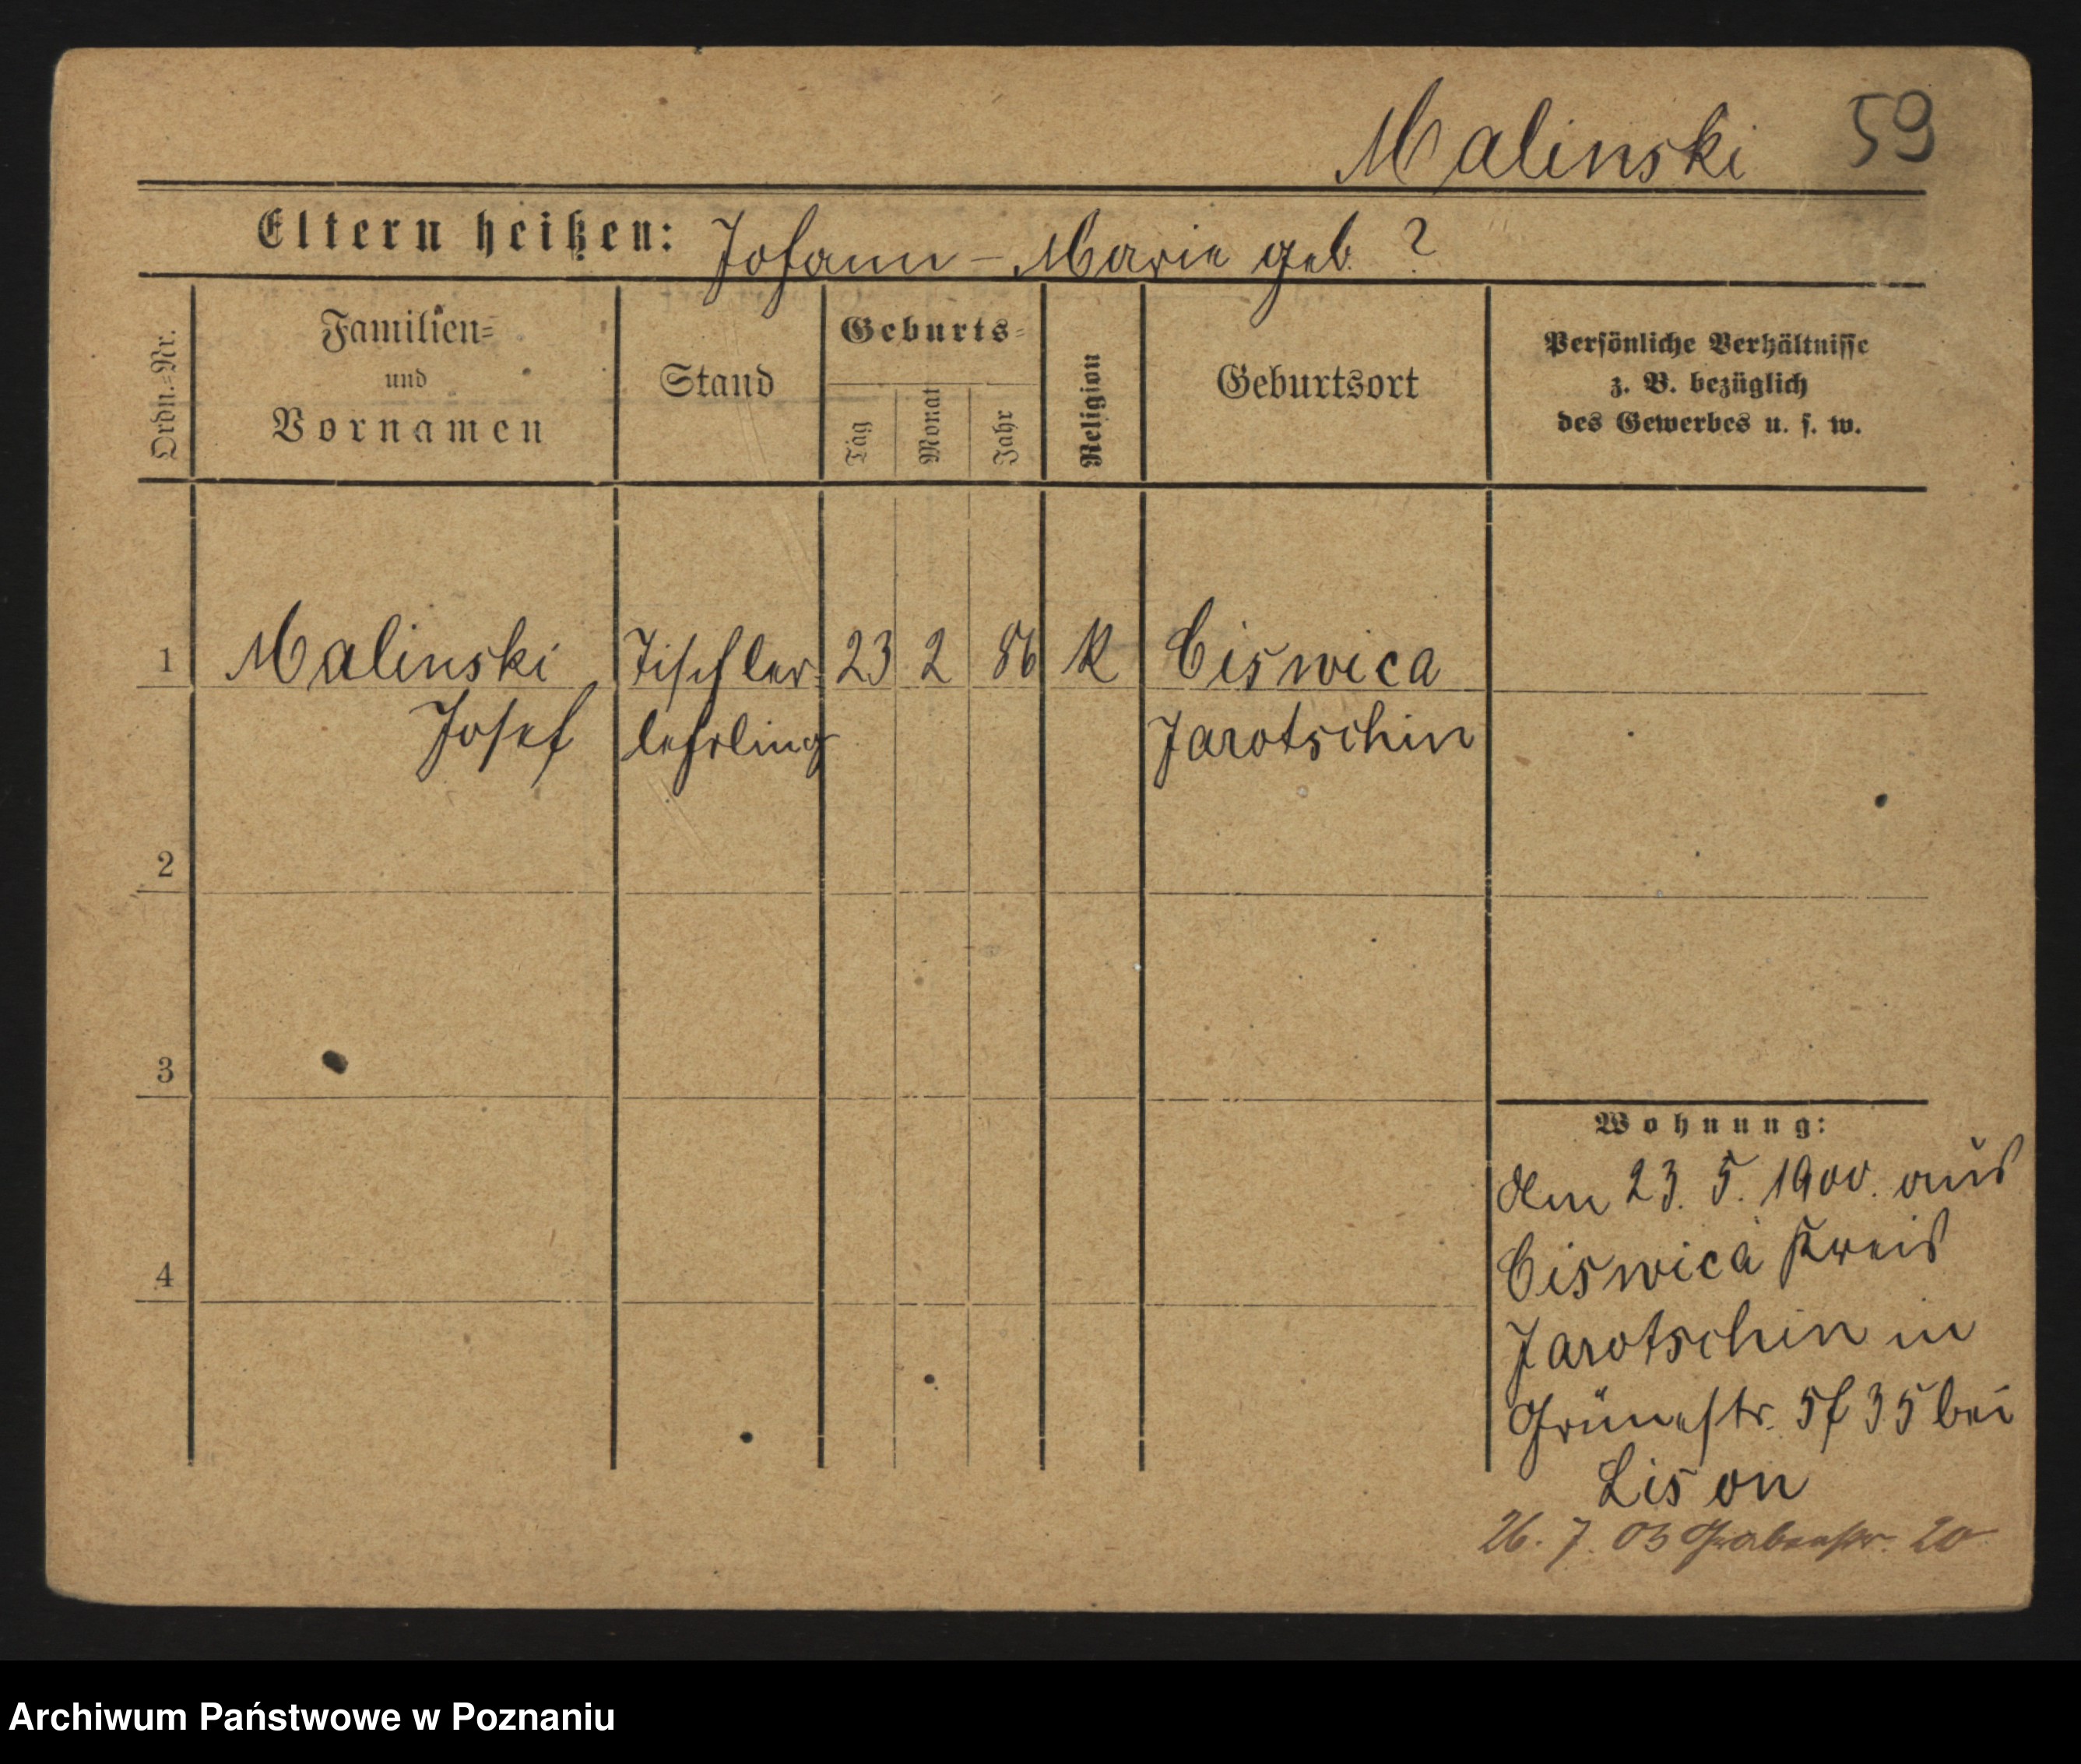 Malinski 59
Eltern heißen: Johann – Marie geb. ?
Ordn.=Nr.
Familien=
und
Vornamen
Stand
Geburts=
Tag
Monat
Jahr
Religion
Geburtsort
Persönliche Verhältnisse
z. B. bezüglich
des Gewerbes u. s. w.
1 Malinski Tischler= 23 2 86 K Ciswica
Josef lehrling Jarotschin
2
3
4
Wohnung:
Am 23. 5. 1900. aus
Ciswica Kreis
Jarotschin in
Grünestr. 35 bei
Lison
26. 7. 03 Grabenstr. 20
Archiwum Państwowe w Poznaniu